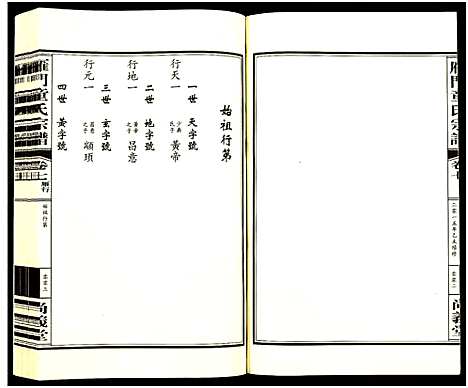 雁門童氏宗譜
卷七
二零一五年乙未續修
零零二
尚義堂
始祖行第
一世 天字號
行天一 少典氏子 黃帝
二世 地字號
行地一 黃帝之子 昌意
三世 玄字號
行元一 昌意之子 顓頊
四世 黃字號
雁門童氏宗譜
卷七
始祖行第
零零三
尚義堂